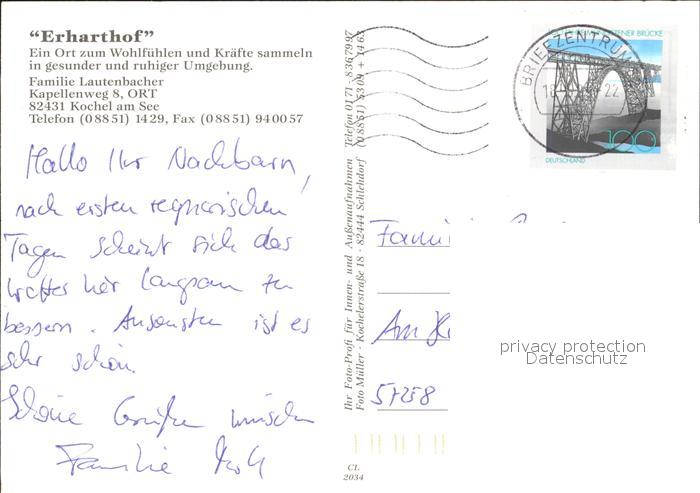 “Erharthof”
Ein Ort zum Wohlfühlen und Kräfte sammeln
in gesunder und ruhiger Umgebung.
Familie Lautenbacher
Kapellenweg 8, ORT
82431 Kochel am See
Telefon (0 88 51) 14 29, Fax (0 88 51) 94 00 57
Hallo Ihr Nachbarn,
nach ersten regnerischen
Tagen scheint sich das
Wetter hier langsam zu
bessern. Ansonsten ist es
sehr schön.
Schöne Grüße wünschen
Familie
Ihr Foto-Profi für Innen- und Außenaufnahmen Telefon 01 71 - 8 36 79 97
Foto Müller · Kochelerstraße 18 · 82444 Schlehdorf (0 88 51) 53 09 + 14 63
CL
2034
TENER BRÜCKE
100
DEUTSCHLAND
BRIEFZENTRUM
22
Fami
Am
57258
privacy protection
Datenschutz